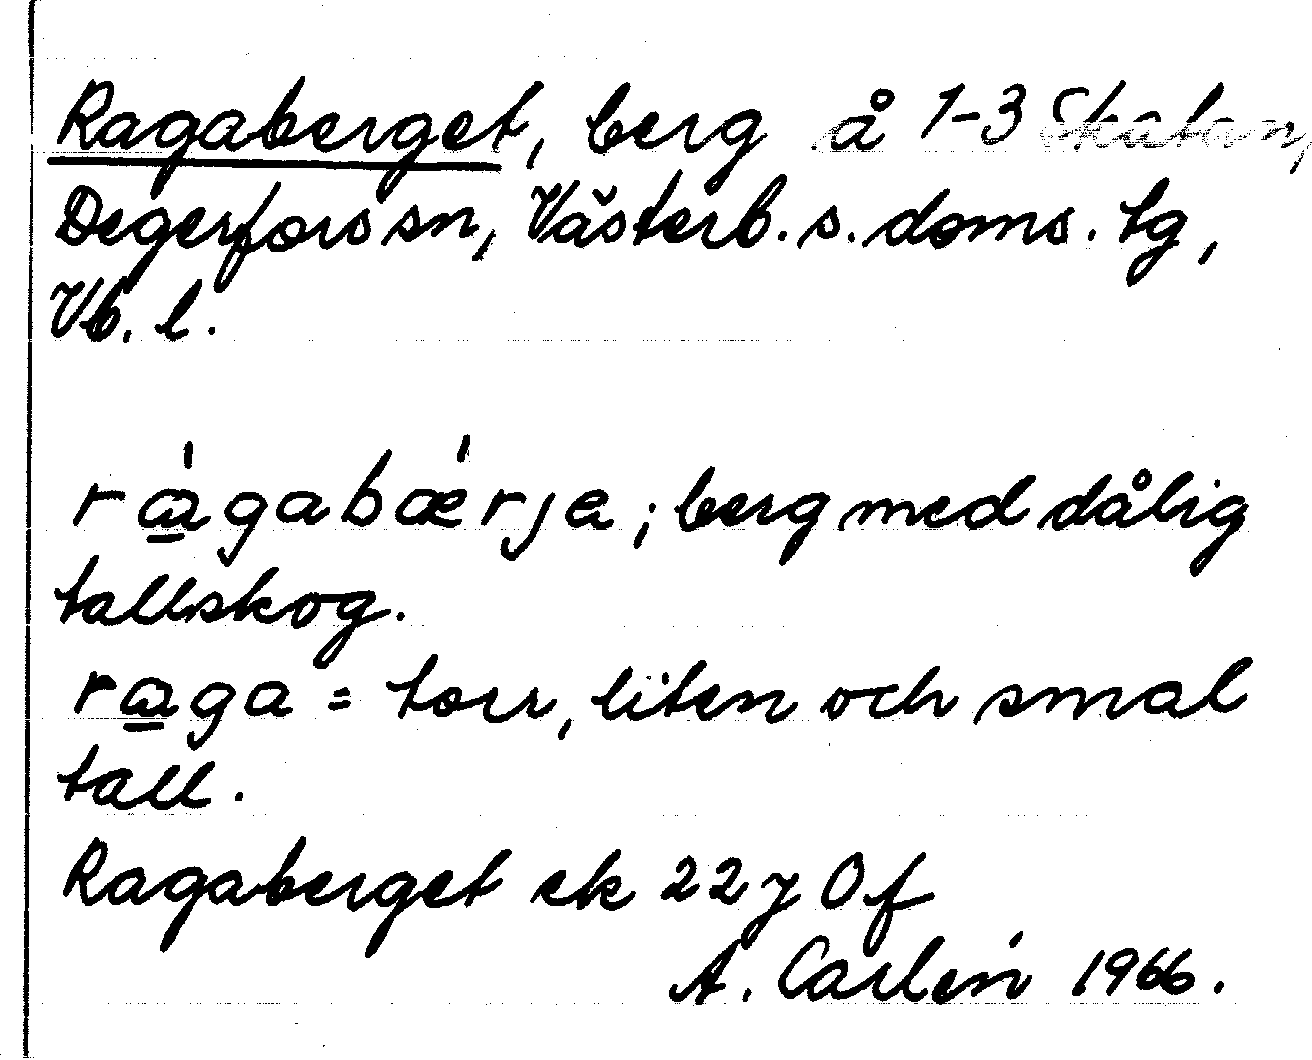 Ragaberget, berg å 1-3 Skatan,
Degerfors sn, Västerb. s. doms. tg,
Vb. l.
ra̲̍gabæ̍rje; berg med dålig
tallskog.
ra̲ga = torr, liten och smal
tall.
Ragaberget ek 22 y 0 f
A. Carlén 1966.